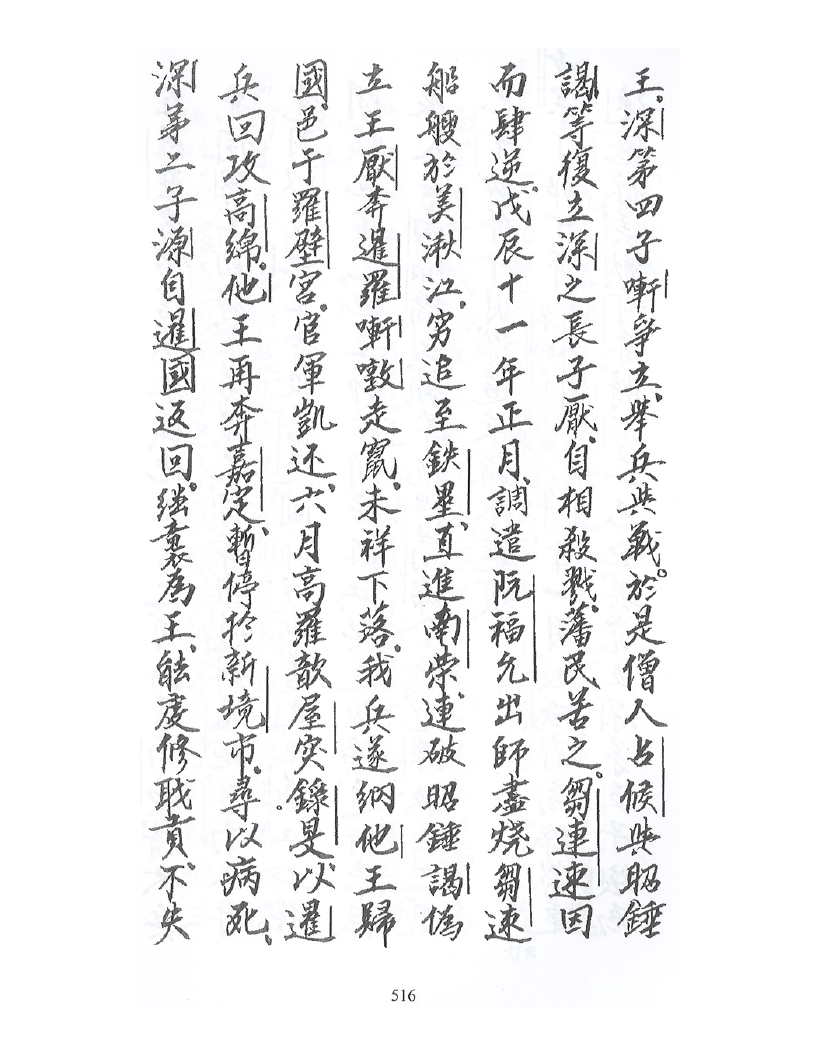 王深第四子噺爭立、舉兵與戰。於是僧人占候與昭錘
謁等復立深之長子厭、自相殺戮。藩民苦之。芻連速因
而肆逆。戊辰十一年正月、調遣阮福允出師盡燒芻速
船艘於美湫江、穷追至鉄壘、直進南荣、連破昭錘謁偽
立王厭奔暹羅、噺噋走竄、未祥下落。我兵遂納他王歸
國邑于羅壁宮。官軍凱还。六月高羅歆屋突錄旻以暹
兵回攻高綿。他王再奔嘉定、暫停於新境市。尋以病死、
深第二子源自暹國返回。継襲為王、能虔修職貢、不失
516